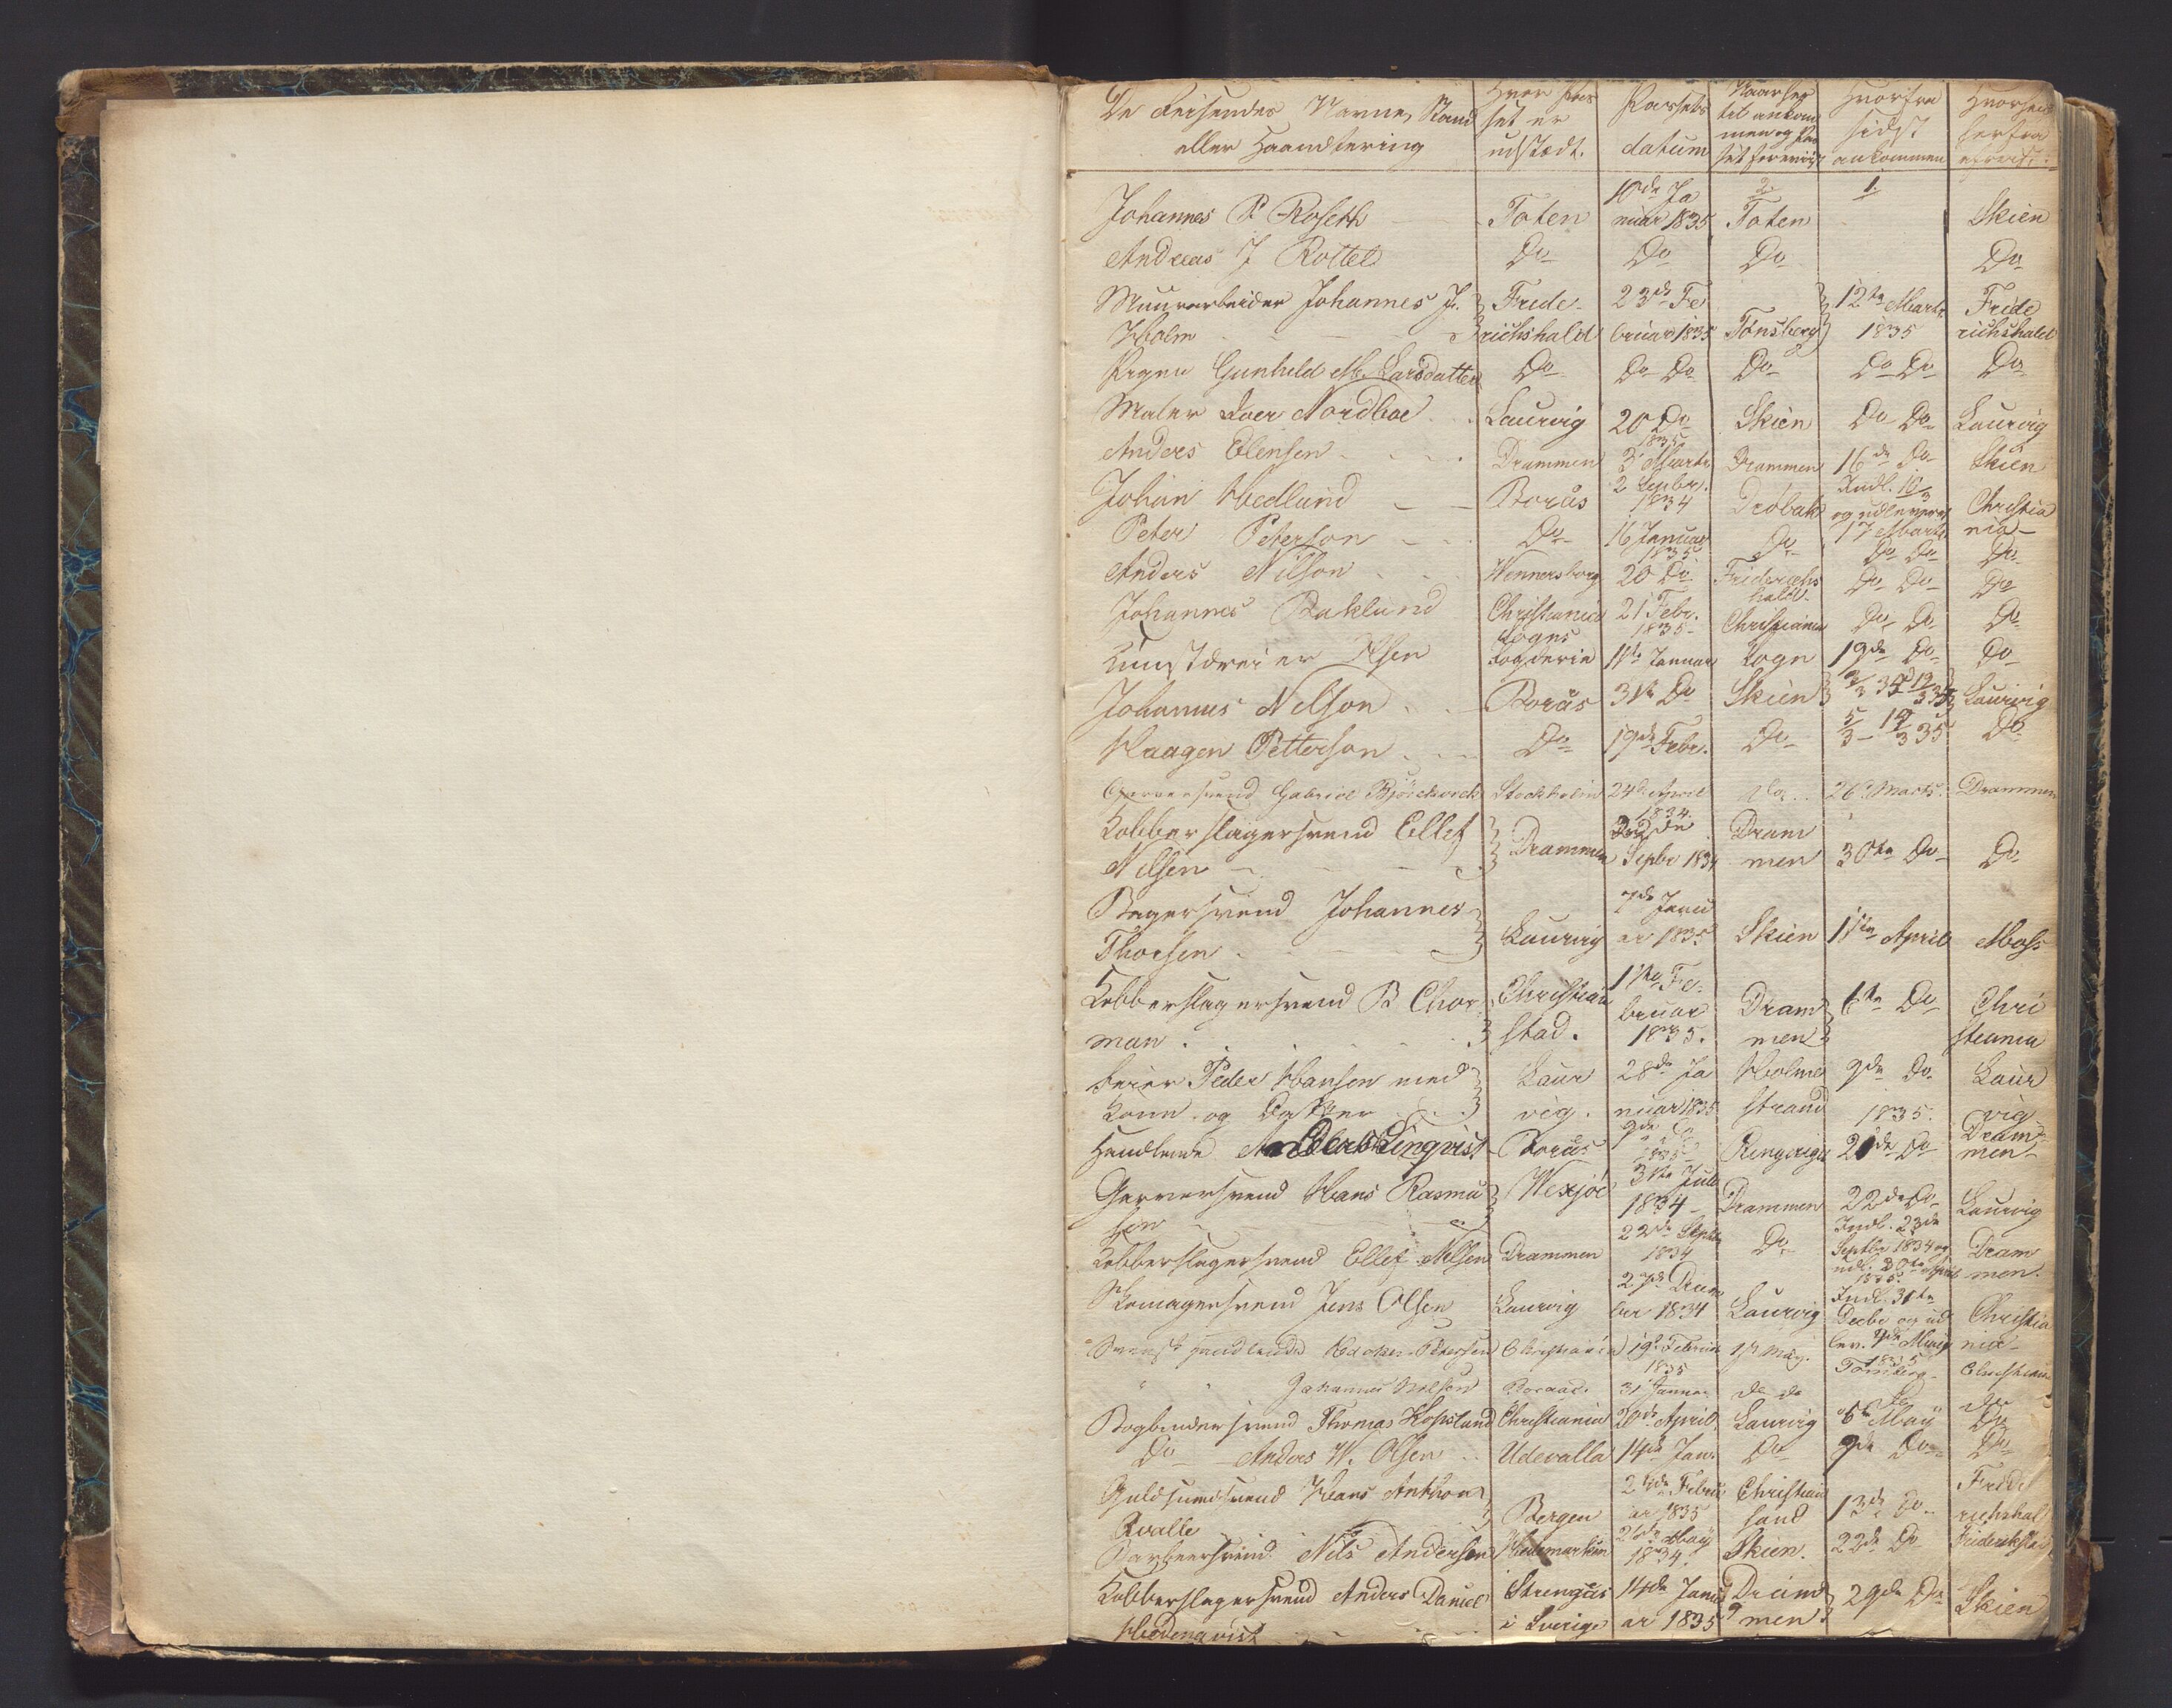 De Reisendes Navne, Stand eller Haandtering | Hvor Passet er udstædt. | Passets datum | Naar her til ankommen og Passet foreviist | Hvorfra sidst ankommen | Hvorhen herfra afreist.
2 | 1
Johannes P Roseth | Toten | 10de Januar 1835 | Toten | Skien
Andreas J Rottel | Do | Do | Do | Do
Muurarbeider Johannes J. Holm | Friderichshald | 23de Februar 1835 | Tønsberg | 12te Marts 1835 | Friderichshald
Pigen Gunhild M. Larsdatter | Do | Do Do | Do | Do Do | Do
Maler Iver Nordboe | Laurvig | 20 Do 1835 | Skien | Do Do | Laurvig
Anders Elensen | Drammen | 3 Marts | Drammen | 16de Do | Skien
Johan Hedlund | Borås | 2 Septbr. 1834 | Drøbak | Indl. 10/3 og udleveret 17 Marts | Christiania
Peter Peterson | Do | 16 Januar 1835 | Do | Do Do | Do
Anders Nilson | Wennersborg | 20 Do | Friderichshald | Do Do | Do
Johannes Baklund | Christiania | 21 Febr. 1835 | Christiania | Do Do | Do
Kunstdreier Olsen | Sogns Fogderie | 11te Januar | Sogn | 19de Do | Do
Johannes Nilson | Borås | 31te Do | Skien | Laurvig
Haagen Petterson | Do | 19de Febr. | Do | Do
Garversvend Gabriel Bjørckveck | Stockholm | 24de April 1834 | Do | 26 Marts | Drammen
Kobberslagersvend Ellef Nilsen | Drammen | Septbr 1834 | Drammen | 30te Do | Do
Bagersvend Johannes Thorsen | Laurvig | 7de Januar 1835 | Skien | 1ste April | Moss
Kobberslagersvend B Chorman | Christianstad. | 1ste Februar 1835. | Drammen | 6te Do | Christiania
Peder Hansen med Kone og Datter | Laurvig. | 28de Januar 1835 | Holmestrand | 9de Do 1835. | Laurvig
Handlende Anders Linqvist | Borås | 9de 1835 | Ringerige | 21de Do | Drammen
Garversvend Hans Rasmusen | Wexjöe | 31te Juli 1834 | Drammen | 22de Do | Laurvig
Kobberslagersvend Ellef Nilsen | Drammen | 22de Septbr 1834 | Do | Indl. 23de Septbr 1834 og udl. 30te April 1835. | Drammen.
Skomagersvend Jens Olsen | Laurvig | 27de Decembr 1834 | Laurvig | Indl. 31te Decbr og udlev. 1ste May 1835 | Christiania
Svensk Handlende Haaken Petersen | Christiania | 19de Februar 1835 | 1st May. | Tønsberg | Christiania
" " Johannes Nilsen | Boraas | 31 Januar | do do | do | do
Bogbindersvend Thomas Kopsland | Christiania | 20de April | Laurvig | 6te May | Do
Do Anders W. Olsen | Udevalla | 14de Jan. | Do | 9de Do | Do
Guldsmedsvend Hans Anthon Qvalle | Bergen | 24de Februar 1835 | Christiansand | 13de Do | Friderichshal
Barbeersvend Nils Andersen | Hedemarken | 26de May 1834. | Skien. | 22de Do | Friderikstad
Kobberslagersvend Anders Daniel Hedenqvist | Strengnäs i Sverige | 14de Januar 1835 | Drammen | 29de Do | Skien